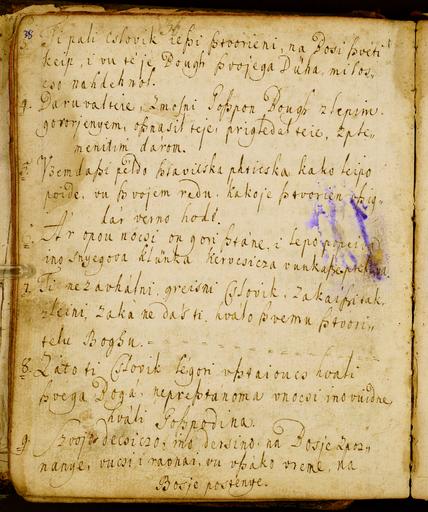 38
3. Ti pak Cslovik lepsi stvorieni, na Bosi sveti
keip, i vu te je Bough svojega Duha, milos,
cso nahdehnol.
4. Daruval teie, zmosni Gosspon Bough zlepim
govorjenyem, osnasil teje, prigledal teie, zple,
menitim darom.
5. Vzemdasi peldo slavicska pticska kako leipo
poide, vu svojem redu, kakoje stvorien
dar verno hodi.
6. Ar opou nocsi on gori stane, i lepo
ino snyegova klunka kervcsicza vunka
7. Ti nezavhalni, greisni Cslovik, zakai si tak
zleini, zaka ne das ti hvalo svemu stvori,
telu Boghu.
8. Zato ti Cslovik segori vstaioucs hvali
svega Boga, neprestanoma vnocsi ino vuidne
hvali Gosspodina.
9. Svojo decsiczo, ino dersino, na Bosje zpoz,
nanye, vucsi i ravnai, vu vsako vreme, na
Bosje postenye.